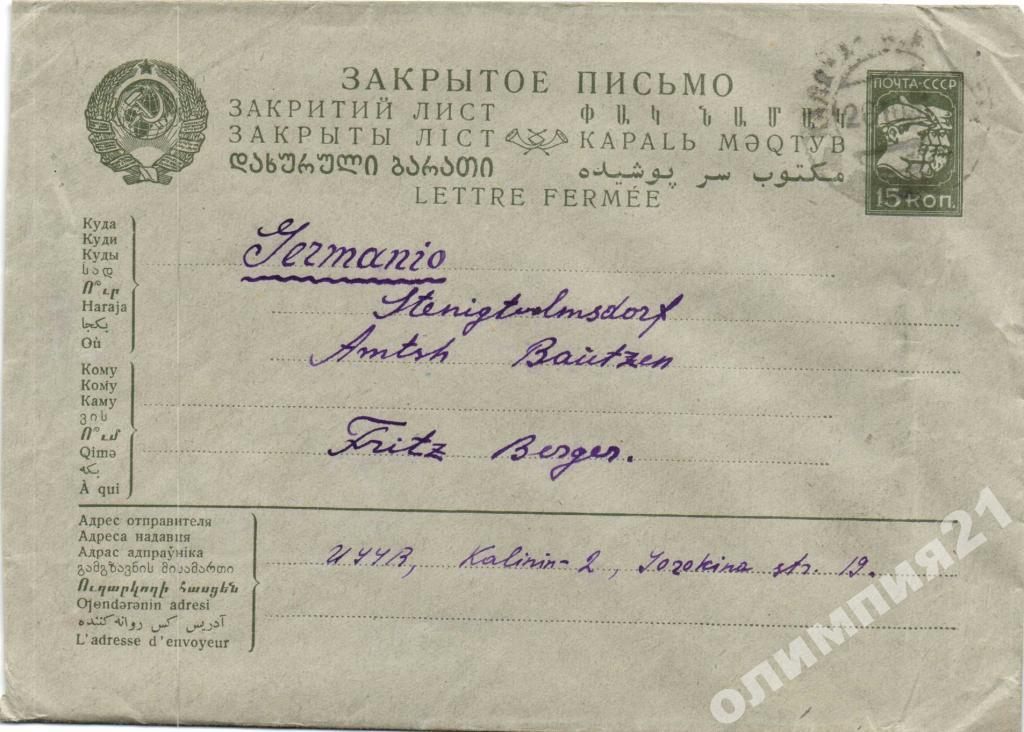 ЗАКРЫТОЕ ПИСЬМО
ЗАКРИТИЙ ЛИСТ
ՓԱԿ ՆԱՄԱԿ
ЗАКРЫТЫ ЛІСТ
KAPALЬ MƏQTУB
ᲓᲐᲮᲣᲠᲣᲚᲘ ᲑᲐᲠᲐᲗᲘ
مکتوب سر پوشیده
LETTRE FERMÉE
ПОЧТА-СССР
15 КОП.
Куда
Куди
Куды
სად
Ո՞ւր
Haraja
یکجا
Où
Germanio
Stenigtwolmsdorf
Amtsh Baützen
Кому
Кому
Каму
ვის
Ո՞ւմ
Qimə
بکه
À qui
Fritz Berger.
Адрес отправителя
Адреса надавия
Адрас адпраўніка
გამგზავნის მისამართი
Ուղարկողի հասցեն
Ojendərənin adresi
آدریس کس روانه کننده
L'adresse d'envoyeur
USSR, Kalinin-2, Sorokina str. 19.
олимпия21